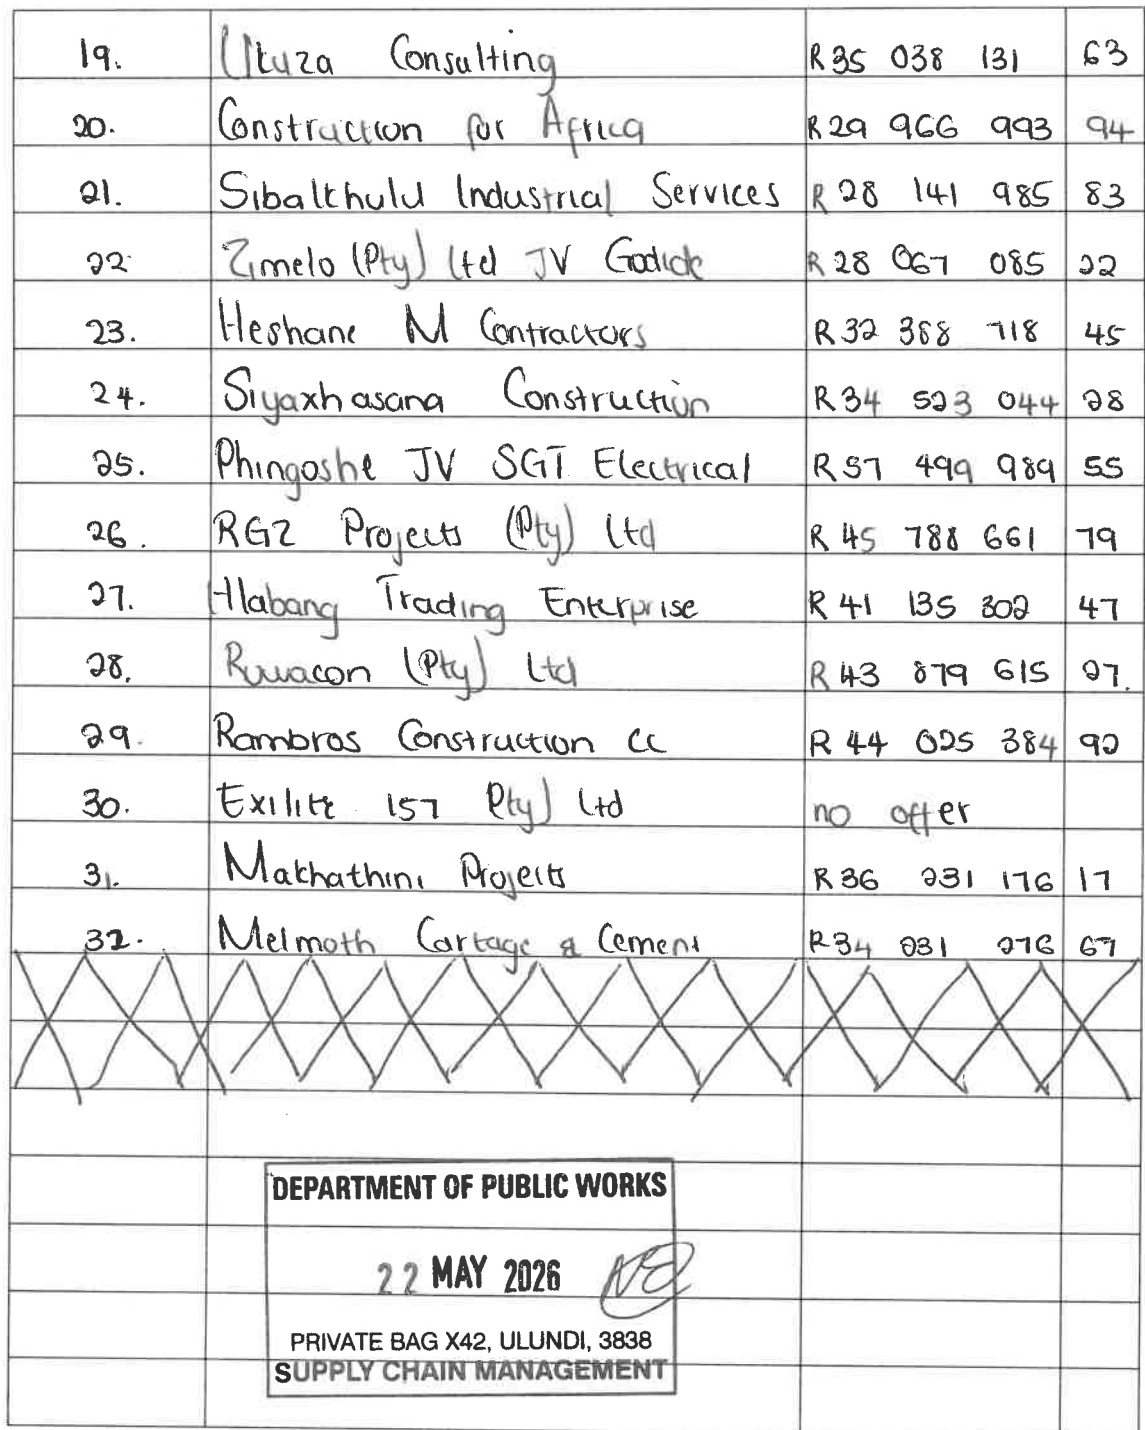 19. Ukuza Consulting R35 038 131 63
20. Construction for Africa R29 966 993 94
21. Sibakhulu Industrial Services R28 141 985 83
22. Zimelo (Pty) Ltd JV Godide R28 067 085 22
23. Heshane M Contractors R32 388 718 45
24. Siyaxhasana Construction R34 523 044 28
25. Phingoshe JV SGT Electrical R57 499 989 55
26. RGZ Projects (Pty) Ltd R45 788 661 79
27. Hlabang Trading Enterprise R41 135 302 47
28. Ruwacon (Pty) Ltd R43 879 615 27.
29. Rambros Construction cc R44 025 384 92
30. Exilite 157 Pty) Ltd no offer
31. Makhathini Projects R36 231 176 17
32. Melmoth Cartage & Cement R34 031 276 67
DEPARTMENT OF PUBLIC WORKS
22 MAY 2026
PRIVATE BAG X42, ULUNDI, 3838
SUPPLY CHAIN MANAGEMENT